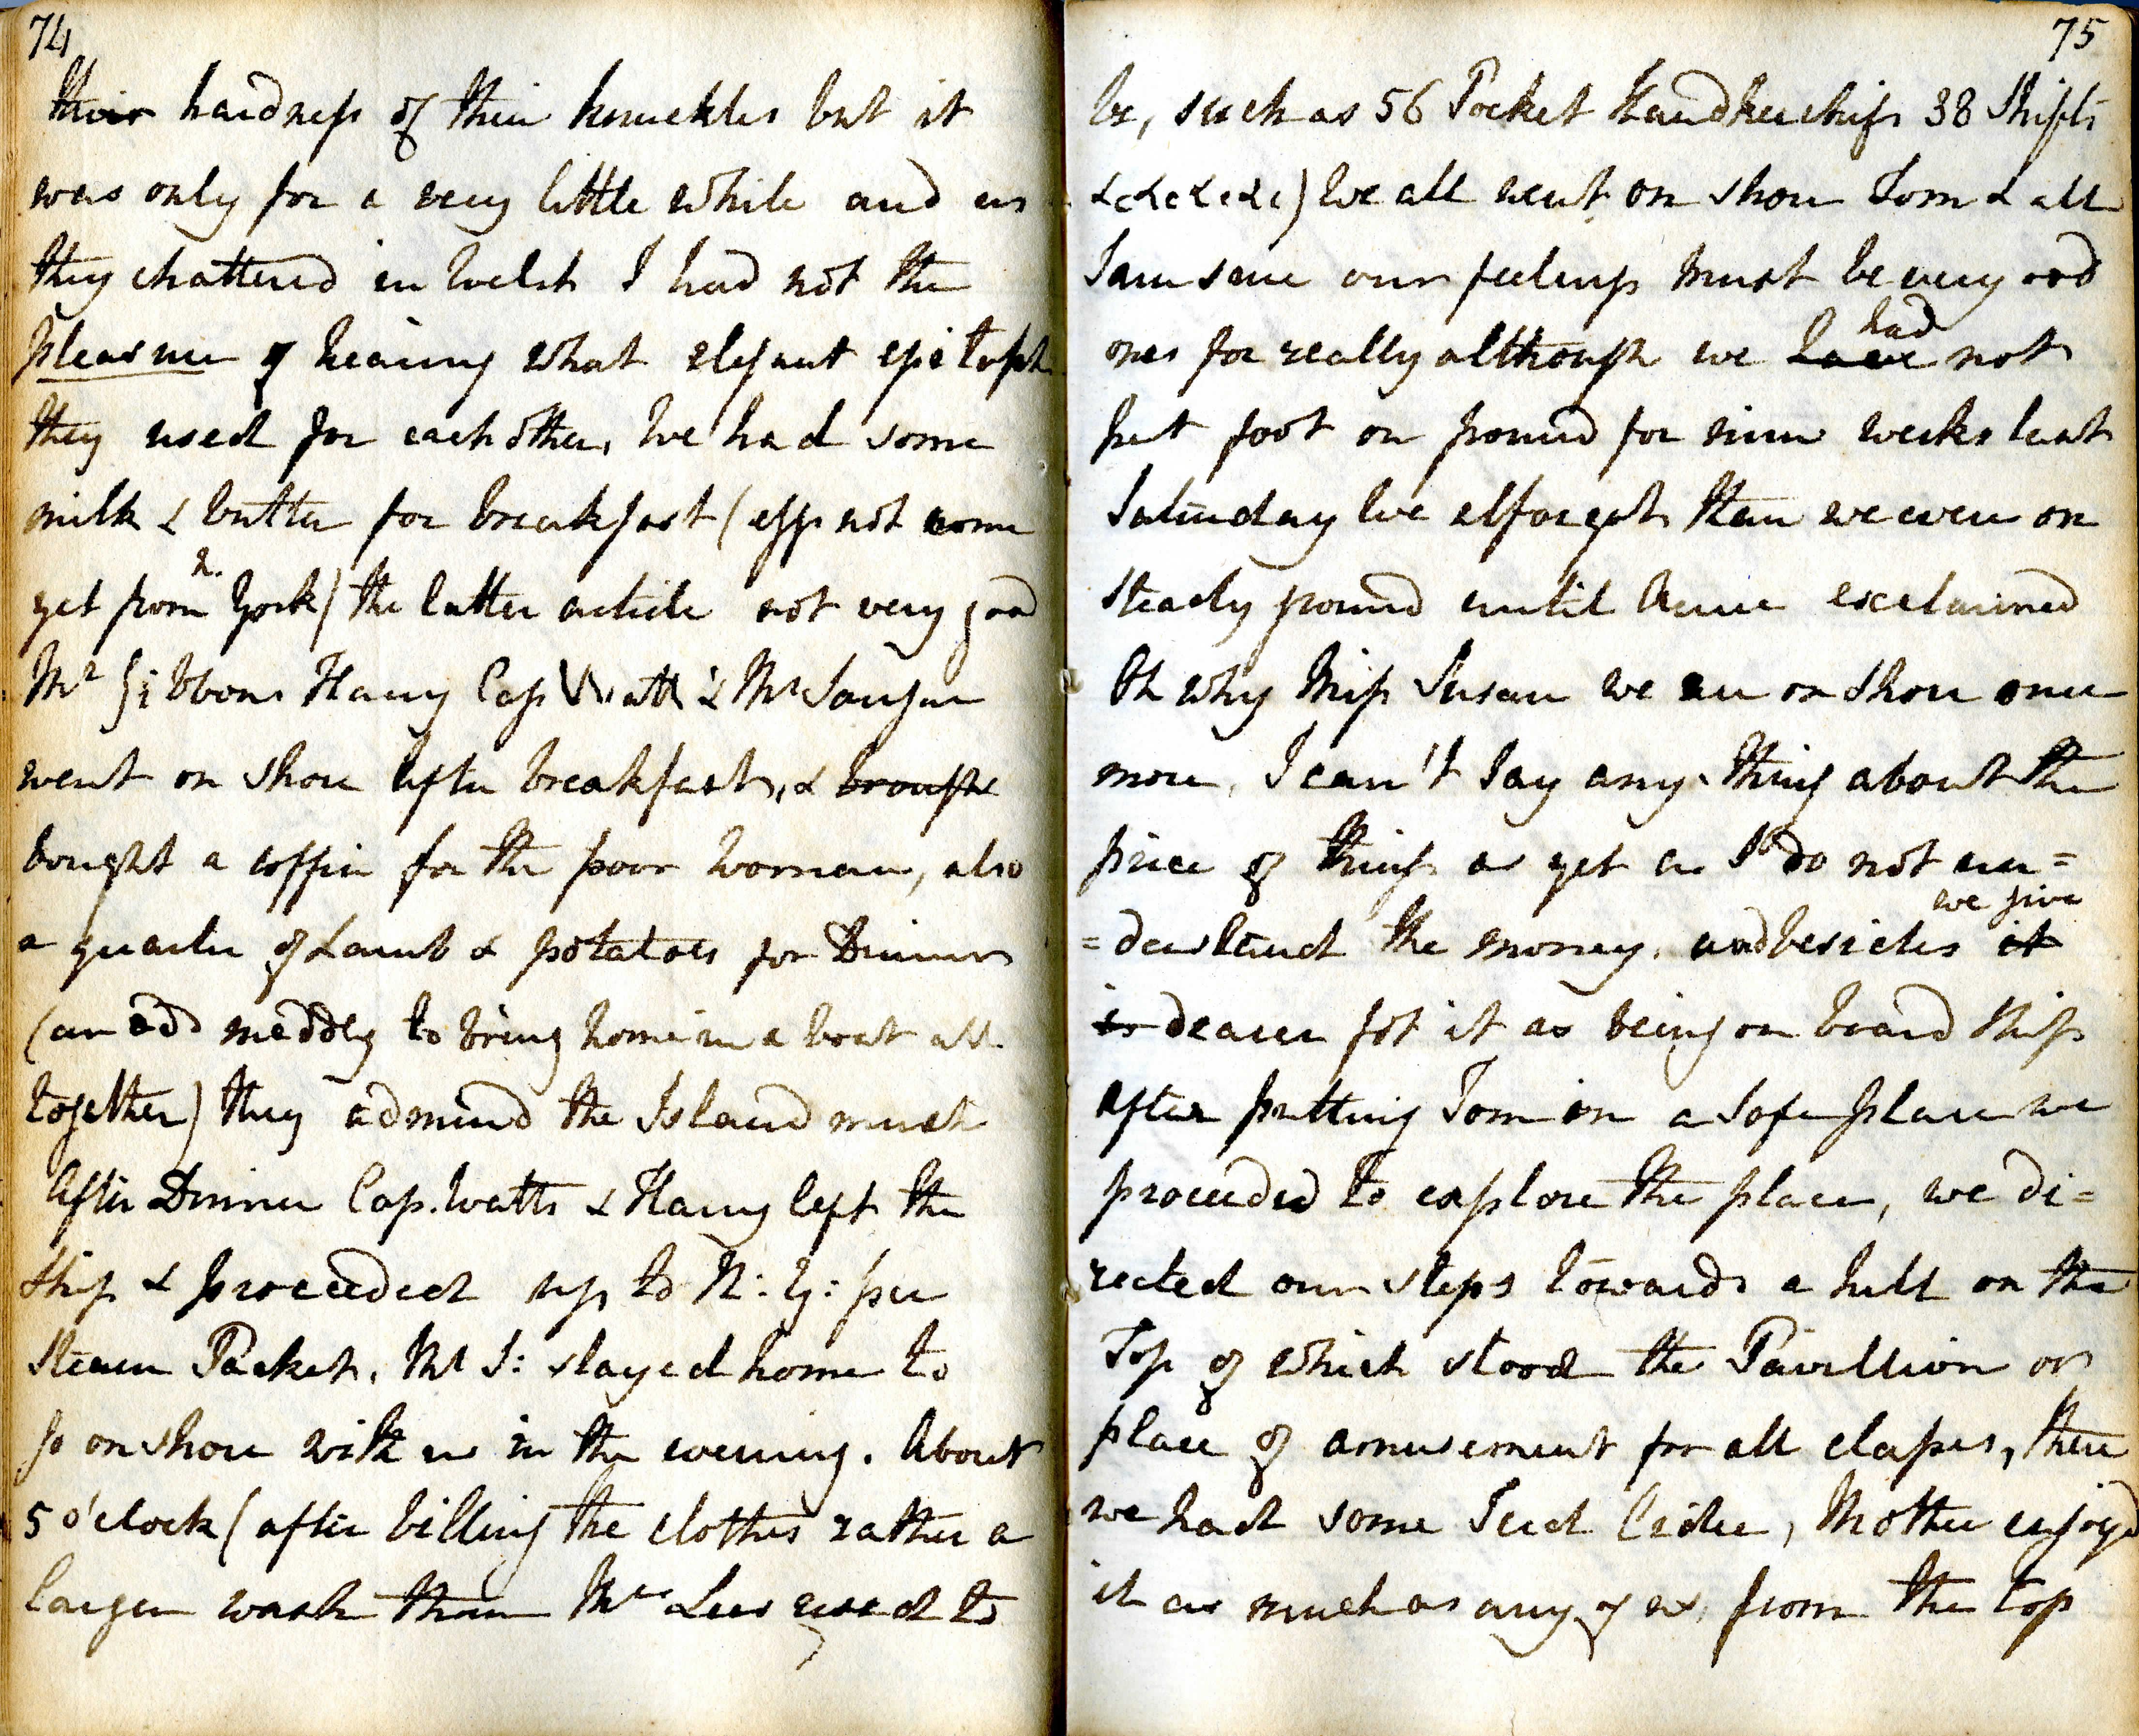 74
their hardness of their knuckles but it
was only for a very little while and as
they chattered in Welsh I had not the
pleasure of hearing what elegant epitaph
they used for each other, We had some
milk & butter for breakfast (eggs not come
yet from N. York) the latter article not very good
Mr Gibbons Harry Cap Watts & Mr Sanger
went on shore after breakfast, & brought
bought a coffin for the poor woman, also
a quarter of Lamb & potatoes for Dinner
(an odd meddly to bring home in a boat all
together) they admired the Island much
After Dinner Cap. Watts & Harry left the
Ship & proceeded up to N: Y: per
Steam Packet, Mr S: stayed home to
go on shore with us in the evening. About
5 o'clock (after billing the clothes rather a
larger wash than Mrs Lees used to
75
be, such as 56 Pocket Handkerchifs 38 Shifts
&c&c&c&c) We all went on shore Tom & all
I am sure our feelings must be very odd
ones for really although we have had not
put foot on ground for nine weeks last
Saturday We all forgot than we were on
steady ground until Anne exclaimed
Oh why Miss Susan we are on Shore once
more, I can't say any thing about the
price of things as yet as I do not un=
=derstand the money. and besides it we give
is dearer for it as being on board Ship
After putting Tom in a Safe place we
proceeded to explore the place, we di=
rected our steps towards a hill on the
Top of which stood the Pavillion or
place of amusement for all classes, there
we had some Iced Cider, Mother enjoyed
it as much as any of us, from the top